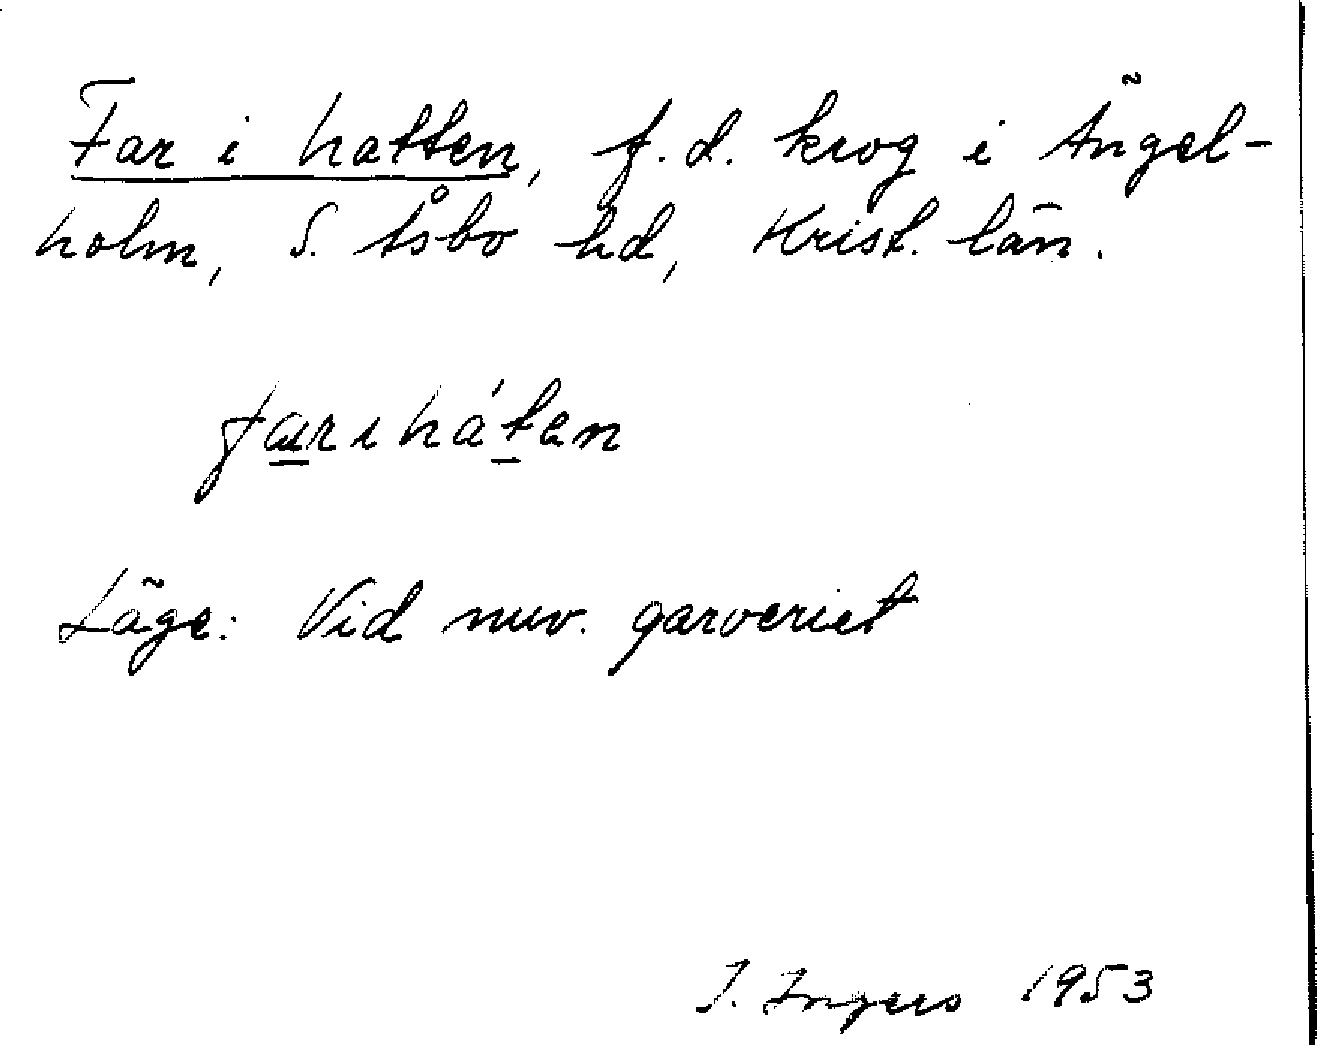 Far i hatten, f.d. krog i Ängel-
holm, S. Åsbo hd, Krist. län.
farihá́ten
Läge: Vid nuv. garveriet
I. Ingers 1953